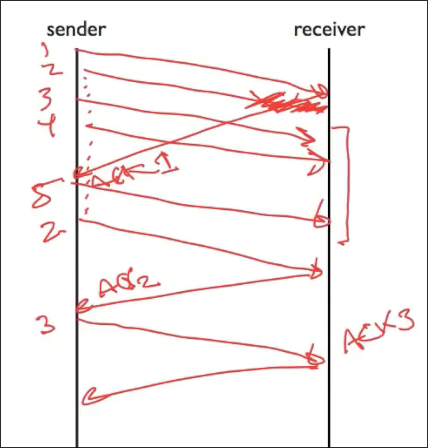 sender receiver
1
2
3
4
ACK 1
5
2
ACK2
3
ACK3